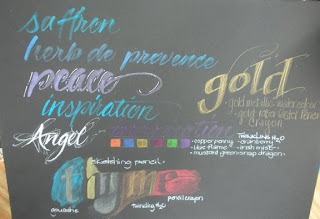 saffron
herb de provence
peace
gold
- gold metallic watercolor
- gold
inspiration
Angel
- copper penny
- blue flame
- mustard green
TWINKLING H2O
- cranberry
- irish mist
- snap dragon
sketching pencil
thyme
gouache
Twinkling H2O
pencil crayon